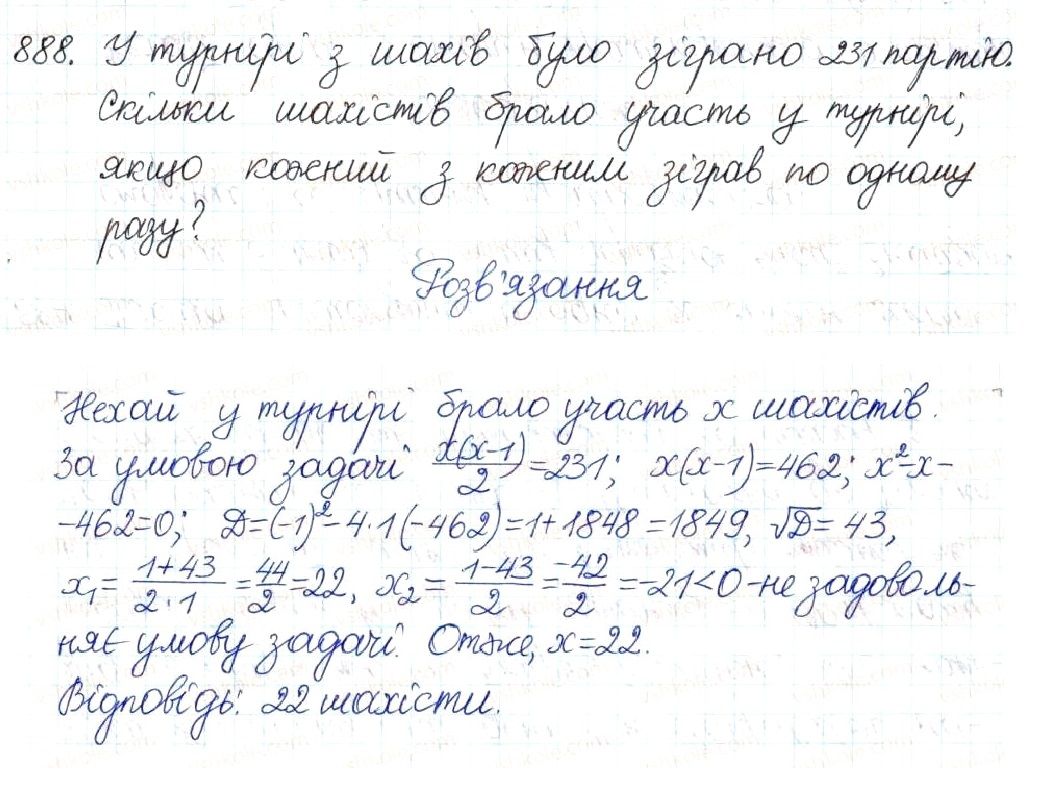 888. У турнірі з шахів було зіграно 231 партію.
Скільки шахістів брало участь у турнірі,
якщо кожний з кожним зіграв по одному
разу?
Розв'язання
Нехай у турнірі брало участь x шахістів.
За умовою задачі x(x-1)/2 = 231; x(x-1)=462; x²-x-
-462=0; D=(-1)²-4·1(-462)=1+1848=1849, √D=43,
x₁ = (1+43)/(2·1) = 44/2 = 22, x₂ = (1-43)/2 = -42/2 = -21<0 -не задоволь-
няє умову задачі. Отже, x=22.
Відповідь: 22 шахісти.